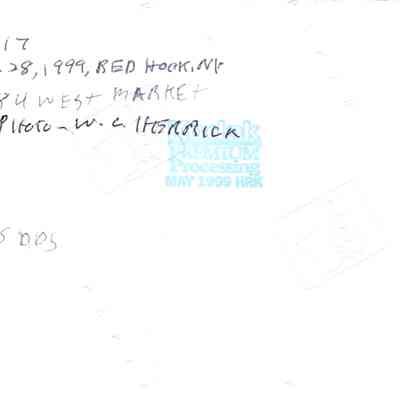 17
28, 1999, RED HOOK, NY
84 WEST MARKET
PHOTO - W. C. HERRICK
Kodak
PREMIUM
Processing
MAY 1999 HRK
DDS